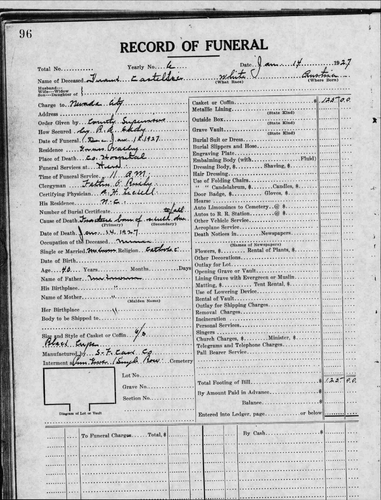 96
RECORD OF FUNERAL
Total No. Yearly No. 6 Date Jan 14 1927
Name of Deceased Frank White Austria
(What Race) (Where Born)
Husband—
Wife—Widow
Son—Daughter of
Charge to Nevada City
Address
Order Given by County Supervisors
How Secured by
Date of Funeral 1927
Residence Grass Valley
Place of Death Co. Hospital
Funeral Services at Here
Time of Funeral Service 11 A M
Clergyman Father
Certifying Physician
His Residence N. C.
Number of Burial Certificate
Cause of Death
(Primary) (Secondary)
Date of Death Jan. 14. 1927
Occupation of the Deceased Miner
Single or Married Unknown Religion Catholic
Date of Birth
Age 40 Years Months Days
Name of Father Unknown
His Birthplace "
Name of Mother "
(Maiden Name)
Her Birthplace "
Body to be Shipped to
Size and Style of Casket or Coffin 6/3
Black
Manufactured by S. F. Cask. Co
Interment Row Cemetery
Lot No.
Grave No.
Section No.
Diagram of Lot or Vault
Casket or Coffin 125 00
Metallic Lining
(State Kind)
Outside Box
(State Kind)
Grave Vault
(State Kind)
Burial Suit or Dress
Burial Slippers and Hose
Engraving Plate
Embalming Body (with Fluid)
Dressing Body, $ Shaving, $
Hair Dressing
Use of Folding Chairs
" " Candelabrum, $ Candles, $
Door Badge, $ Gloves, $
Hearse
Auto Limousines to Cemetery @ $
Autos to R. R. Station @ $
Other Vehicle Service
Aeroplane Service
Death Notices in Newspapers
(Names of Newspapers)
Flowers, $ Rental of Plants, $
Other Decorations
Outlay for Lot
Opening Grave or Vault
Lining Grave with Evergreen or Muslin
Matting, $ Tent Rental, $
Use of Lowering Device
Rental of Vault
Outlay for Shipping Charges
Removal Charges
Incineration
Personal Services
Singers
Church Charges, $ Minister, $
Telegrams and Telephone Charges
Pall Bearer Service
Total Footing of Bill $ 125 00
By Amount Paid in Advance $
Balance $
Entered into Ledger, page or below
To Funeral Charges Total $
By Cash $